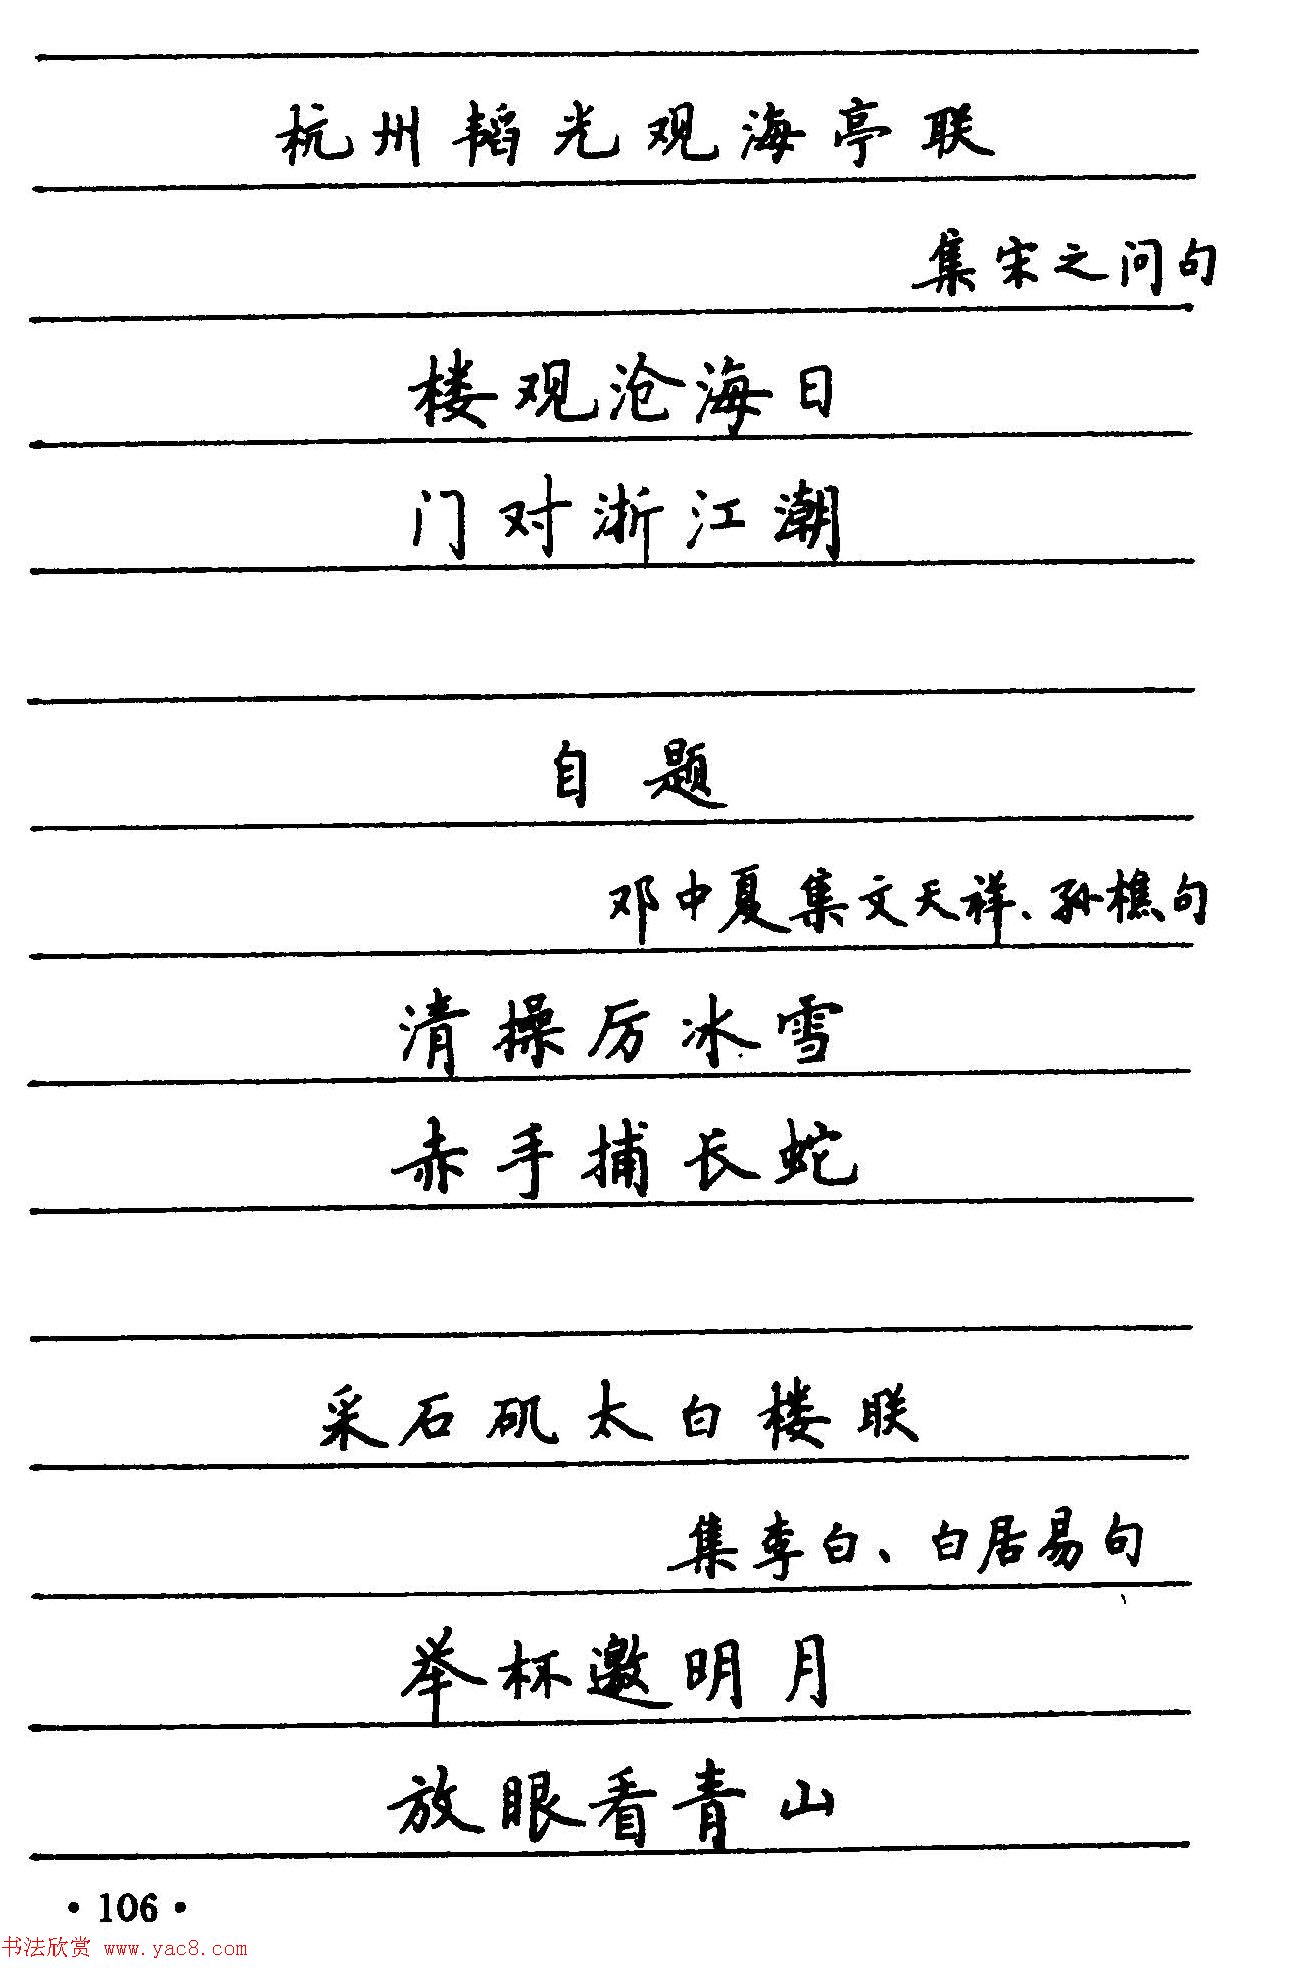 杭州韬光观海亭联
集宋之问句
楼观沧海日
门对浙江潮
自题
邓中夏集文天祥、孙樵句
清操厉冰雪
赤手捕长蛇
采石矶太白楼联
集李白、白居易句
举杯邀明月
放眼看青山
·106·
书法欣赏 www.yac8.com